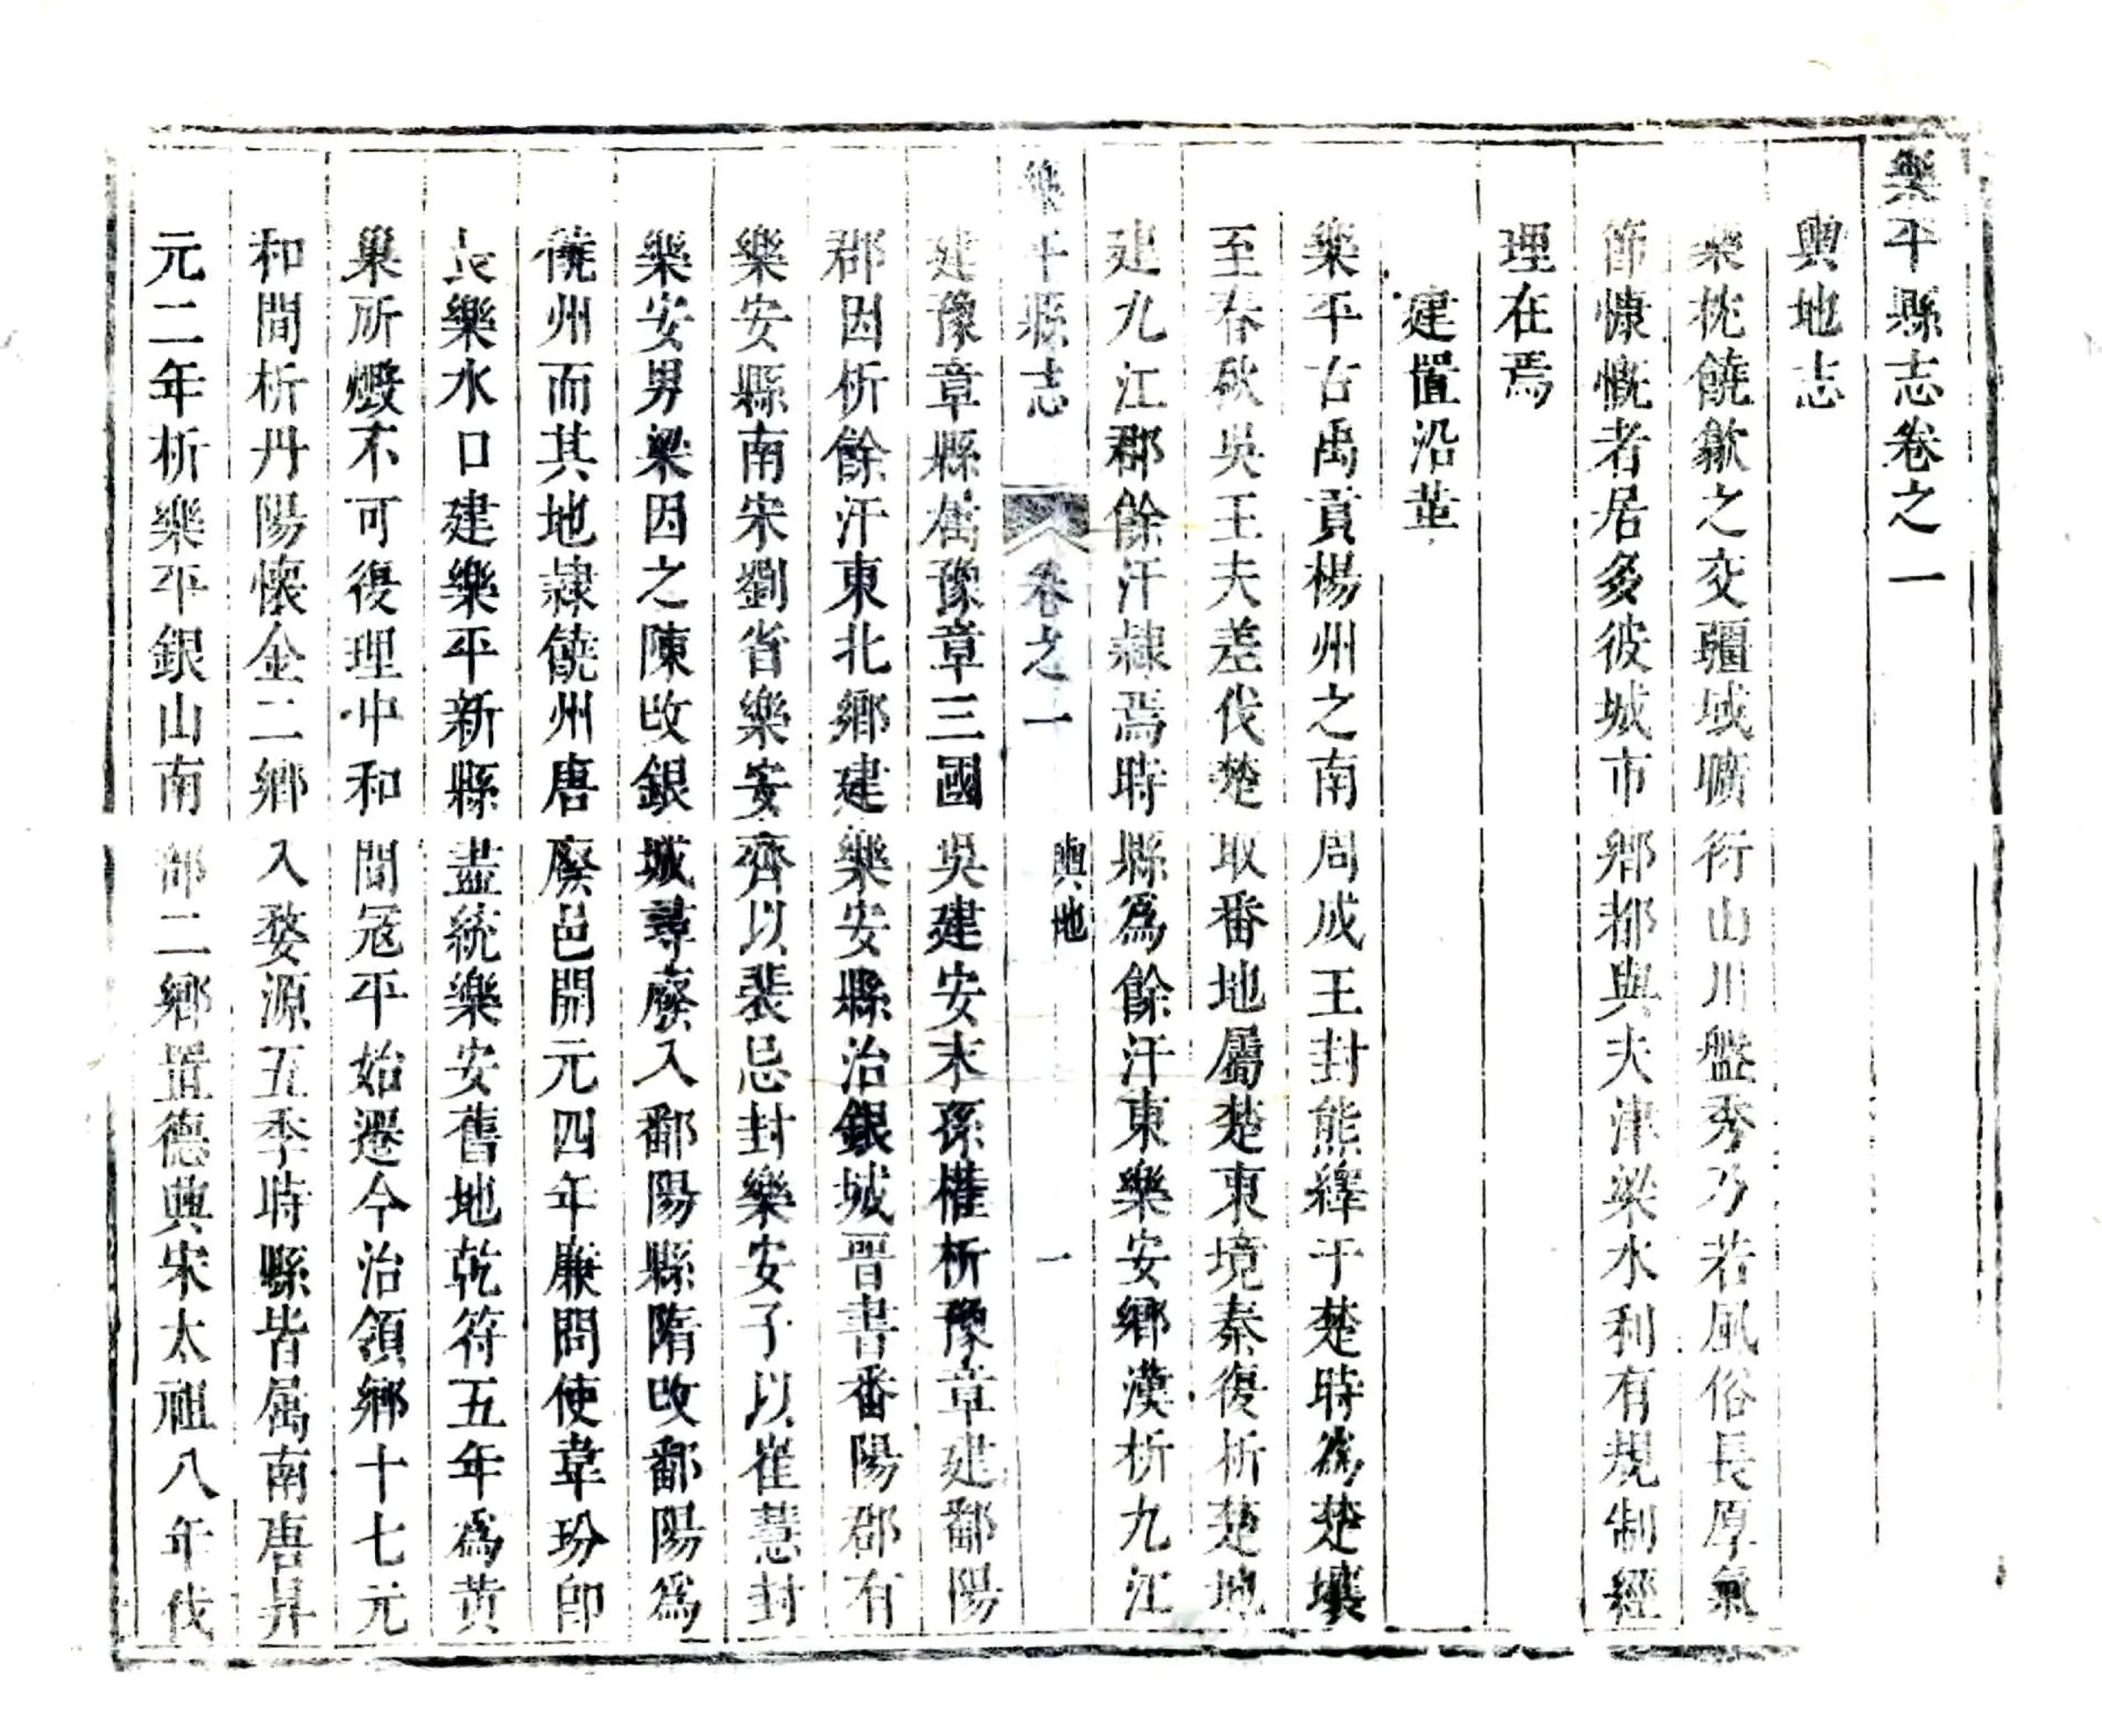 樂平縣志卷之一
輿地志
樂枕饒歙之交疆域曠衍山川盤秀乃若風俗長厚氣
節慷慨者居多彼城市鄉都與夫津梁水利有規制經
理在焉
建置沿革
樂平古禹貢楊州之南周成王封熊繹于楚時為楚壤
至春秋吳王夫差伐楚取番地屬楚東境秦復析楚地
建九江郡餘汗隷焉時縣爲餘汗東樂安鄉漢析九江
樂平縣志 卷之一 輿地 一
建豫章縣屬豫章三國吳建安末孫權析豫章建鄱陽
郡因析餘汗東北鄉建樂安縣治銀城晋書番陽郡有
樂安縣南宋劉省樂安齊以裴忌封樂安子以崔慧封
樂安男梁因之陳改銀城尋廢入鄱陽縣隋改鄱陽爲
饒州而其地隷饒州唐廢邑開元四年廉問使韋玢卽
長樂水口建樂平新縣盡統樂安舊地乾符五年爲黃
巢所燬不可復理中和間冦平始遷今治領鄉十七元
和間析丹陽懷金二鄉入婺源五季時縣皆屬南唐昇
元二年析樂平銀山南部二鄉置德興宋太祖八年伐